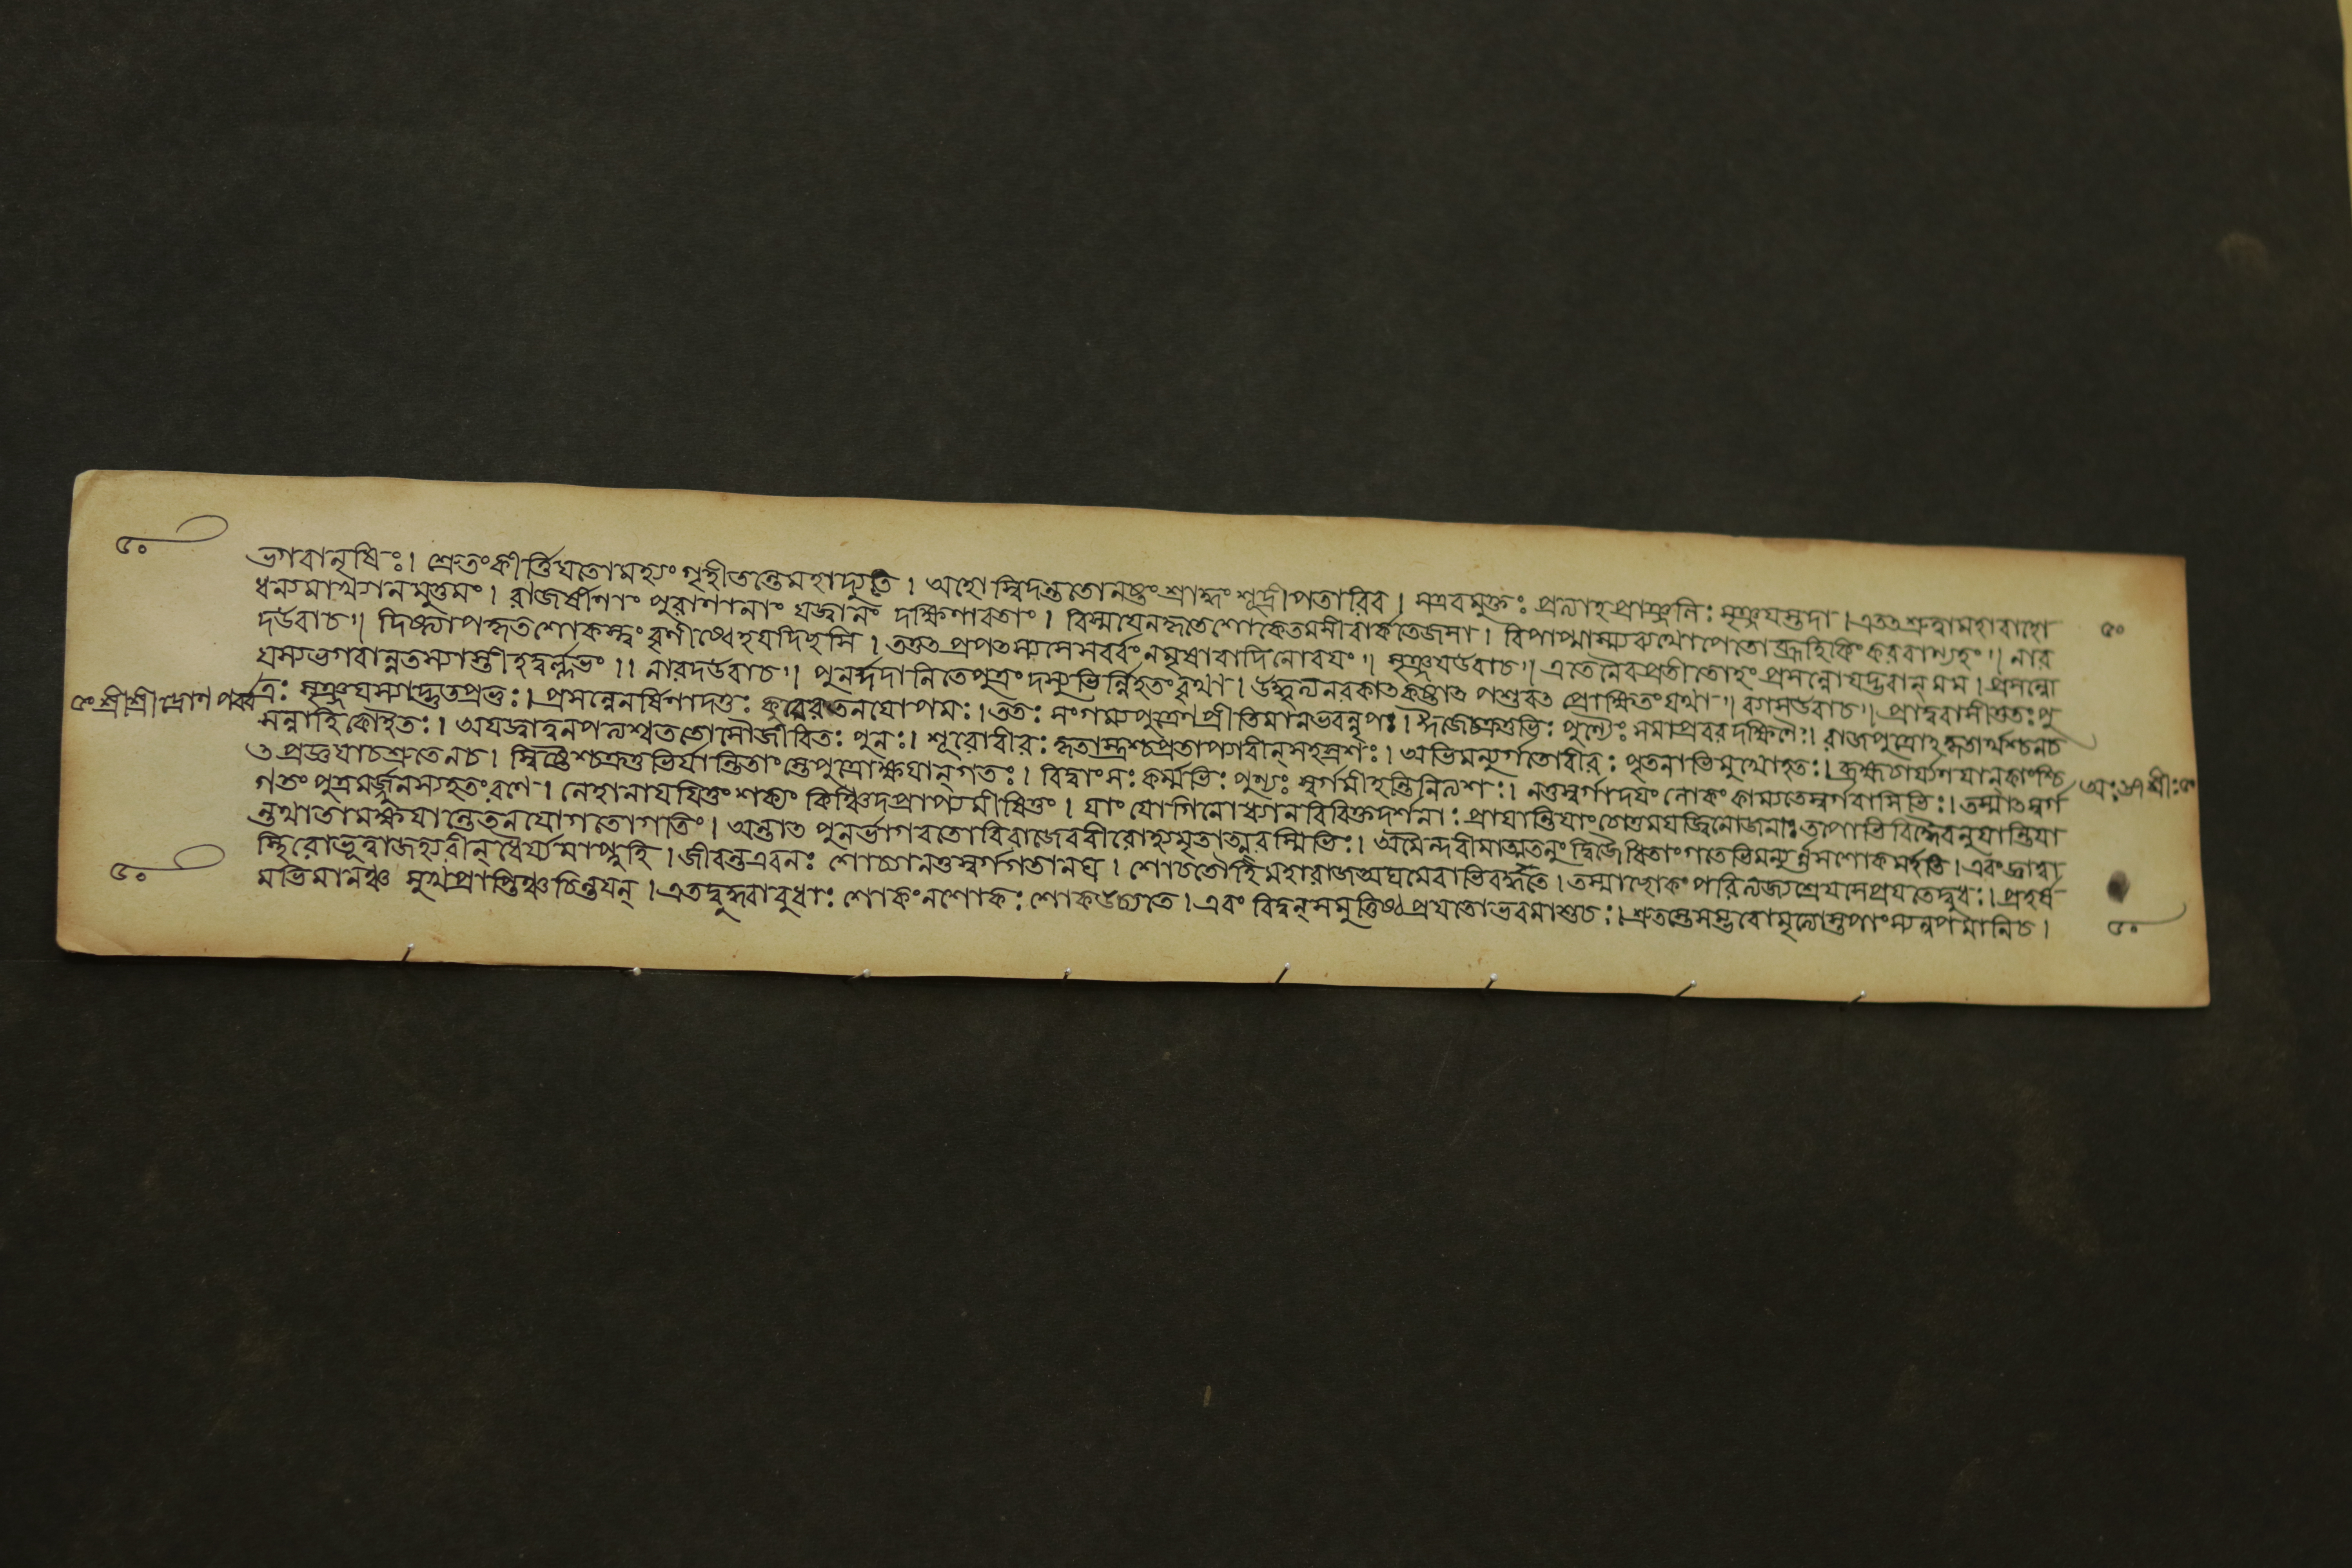 ৫০
ভগবানৃষিঃ। শ্রুতংকীর্ত্তিযতোমহ্যং গৃহীতন্তেমহাদ্যুতে। অহোস্বিদন্ততোনষ্টংশ্রাদ্ধং শূদ্রীপতাবিব। সএবমুক্তঃ প্রত্যাহপ্রাঞ্জলিঃ সৃঞ্জযস্তদা। এতৎশ্রুত্বামহাবাহো
ধন্যমাখ্যানমুত্তমং। রাজর্ষীণাং পুরাণানাং যজ্বানাং দক্ষিণাবতাং। বিস্মযেনহৃতেশোকেতমসীবার্কতেজসা। বিপাপ্মাস্ম্যব্যথোপেতোব্রূহিকিংকরবাণ্যহং॥ নার ৫০
দউবাচ॥ দিষ্ট্যাপহৃতশোকস্ত্বং বৃণীষ্বেহযদিছসি। তত্তৎপ্রপৎস্যসেসর্ব্বংনমৃষাবাদিনোবযং॥ সৃঞ্জযউবাচ॥ এতেনৈবপ্রতীতোহংপ্রসন্নোযদ্ভবান্ মম। প্রসন্নো
যস্যভগবান্নতস্যাস্তীহদুর্ল্লভং।। নারদউবাচ॥ পুনর্দ্দদানিতেপুত্রং দস্যুভির্ন্নিহতংবৃথা। উদ্ধৃত্যনরকাৎকষ্টাৎ পশুবৎ প্রোক্ষিতংযথা॥ ব্যাসউবাচ॥ প্রাদুরাসীত্ততঃপু
৫ং শ্রীশ্রীদ্রোণপর্ব্ব ত্রঃ সৃঞ্জযস্যাদ্ভুতপ্রভঃ। প্রসন্নেনর্ষিণাদত্তঃ কুবেরতনযোপমঃ। ততঃ সংগম্যপুত্রেণপ্রীতিমানভবন্নৃপঃ। ঈজেচক্রতুভিঃ পুণ্যৈঃ সমাপ্তবরদক্ষিণৈঃ। রাজপুত্রোহকৃতার্থশ্চনচ
সন্নাহিকোহতঃ। অযজ্বাত্বনপত্যশ্চততোসৌজীবিতঃ পুনঃ। শূরোবীরঃ কৃতাস্ত্রশ্চপ্রতাপ্যারীন্সহস্রশঃ। অভিমন্যুর্গতোবীরঃ পৃতনাভিমুখোহতঃ। ব্রহ্মচর্য্যেণযান্কাংশ্চি
ৎপ্রজ্ঞযাচশ্রুতেনচ। স্বিষ্টৈশ্চক্রতুভির্যান্তিতাংস্তেপুত্রোক্ষযান্গতঃ। বিদ্বাংসঃ কর্ম্মভিঃ পুণ্যৈঃ স্বর্গমীহন্তিনিত্যশঃ। নতুস্বর্গাদযং লোকংকাম্যতেস্বর্গবাসিভিঃ। তস্মাৎস্বর্গ
গতং পুত্রমর্জ্জুনস্যহতংরণে। নেহানাযযিতুং শক্যং কিঞ্চিদপ্রাপ্যমীষিতুং। যাং যোগিনোধ্যানবিবিক্তদর্শনাঃ প্রাযান্তিযাংচোত্তমযজ্বিনোজনাঃ। তপোভিরিদ্ধৈরনুযান্তিযা
ন্তথাতামক্ষযান্তেতনযোগতোগতিং। অন্তাৎ পুনর্ভাগবতোবিরাজেবরীরোহ্যমৃতাত্মরস্মিভিঃ। তামৈন্দবীমাত্মতনুং দ্বিজোচিতাংগতোভিমন্যুর্ন্নসশোকমর্হতি। এবংজ্ঞাত্বা
স্থিরোভূত্বাজহ্যরীন্ধৈর্য্যমাপ্নুহি। জীবন্তএবনঃ শোচ্যানতুস্বর্গগতানঘ। শোচতোহিমহারাজঅঘমেবাভিবর্দ্ধতে। তস্মাছোকং পরিত্যজ্যশ্রেযসেপ্রযতেদ্বুধঃ। প্রহর্ষ
৫০ মভিমানঞ্চ সুখপ্রাপ্তিঞ্চচিন্তযন্। এতদ্বুদ্ধ্বাবুধাঃ শোকংনশোকঃ শোকউচ্যতে। এবং বিদ্বন্সমুত্তিষ্ঠপ্রযতোভবমাশুচঃ। শ্রুতস্তেসম্ভবোমৃত্যোস্তপাংস্যনুপমানিচ।
৫০